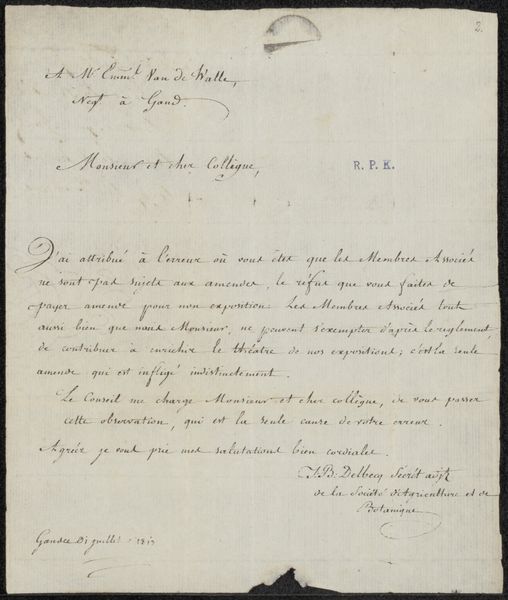 2.
A Mr. Emml. Van de Walle,
Negt. à Gand.
Monsieur et cher Collègue,
R. P. K.
J'ai attribué à l'erreur où vous êtes que les Membres Associés
ne sont pas sujets aux amendes, le réfus que vous faites de
payer amende pour non exposition. Les Membres Associés tout
aussi bien que nous Monsieur, ne peuvent s'exempter d'après le reglement,
de contribuer à enrichir le théatre de nos expositions; c'est la seule
amende qui est infligé indistinctement.
Le Conseil me charge Monsieur et cher collègue, de vous passer
cette observation, qui est la seule cause de votre erreur.
Agréer je vous prie mes salutations bien cordiales.
J. B. Delbecq Secrét adjt
de la Société d'Agriculture et de
Botanique
Gand ce juillet